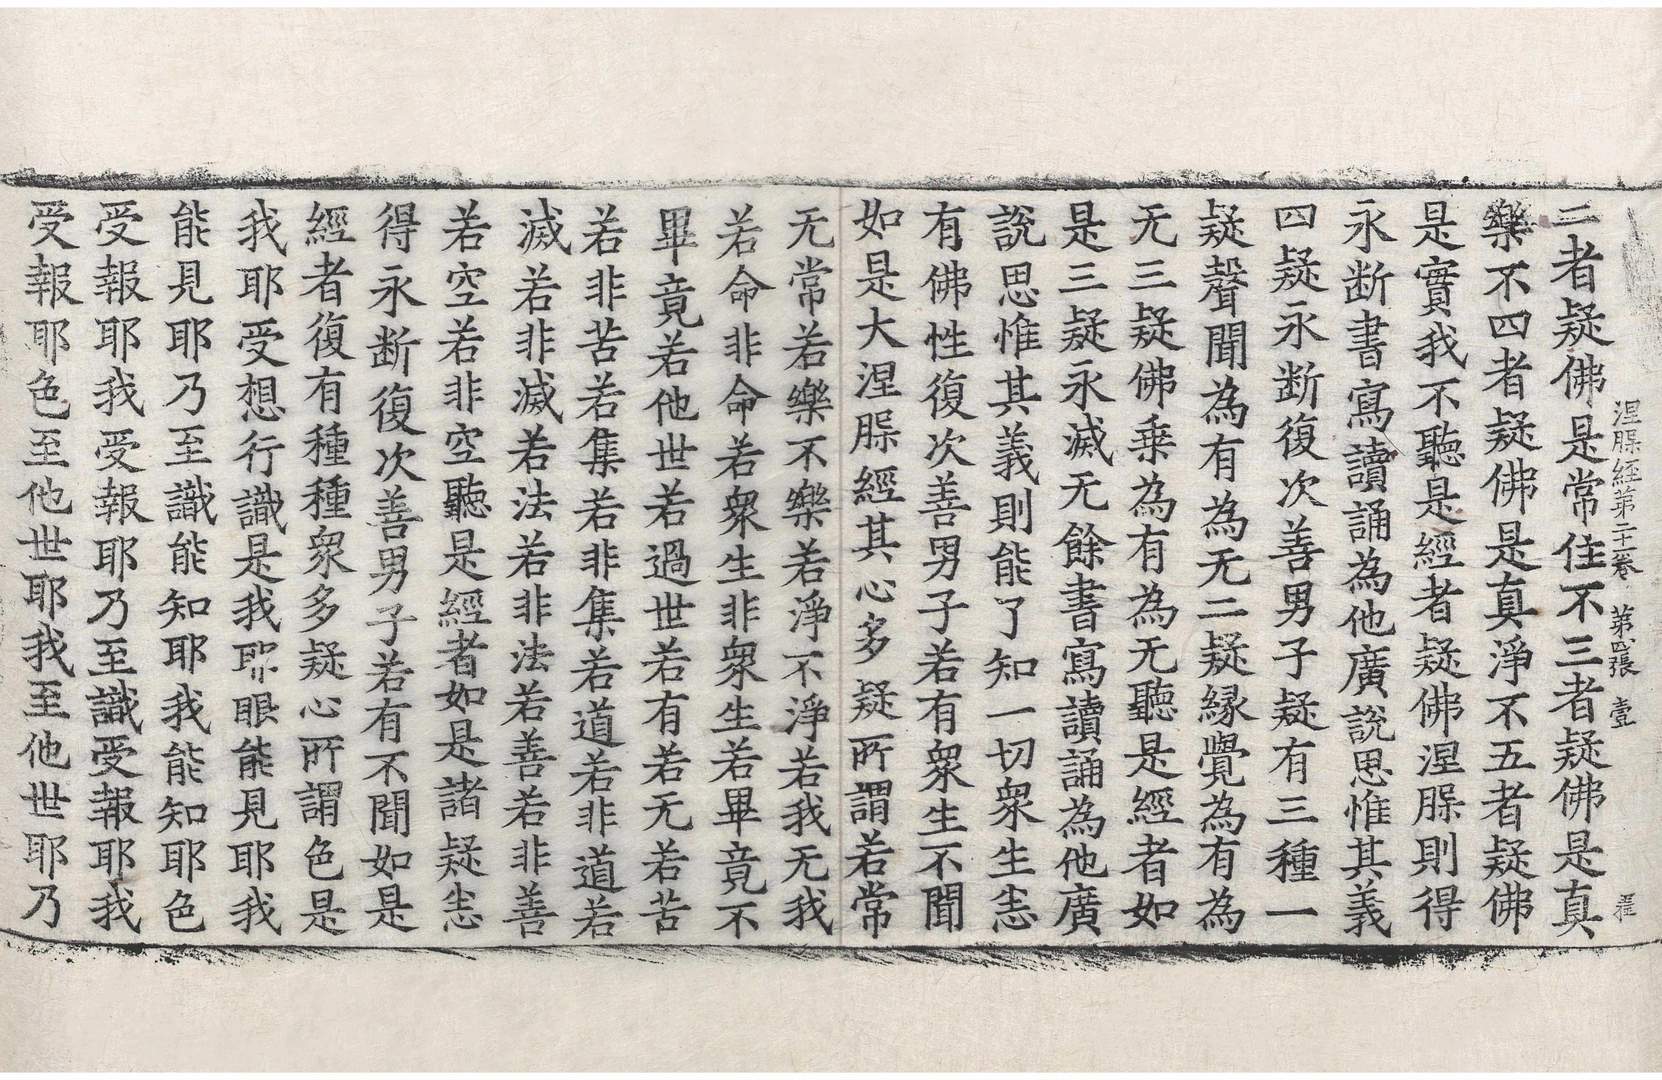 涅槃經第二十二卷 第四張 壹
二者疑佛是常住不三者疑佛是真
樂不四者疑佛是真淨不五者疑佛
是實我不聽是經者疑佛涅槃則得
永断書寫讀誦為他廣說思惟其義
四疑永断復次善男子疑有三種一
疑聲聞為有為无二疑緣覺為有為
无三疑佛乗為有為无聽是經者如
是三疑永滅无餘書寫讀誦為他廣
說思惟其義則能了知一切衆生悉
有佛性復次善男子若有衆生不聞
如是大涅槃經其心多疑所謂若常
无常若樂不樂若淨不淨若我无我
若命非命若衆生非衆生若畢竟不
畢竟若他世若過世若有若无若苦
若非苦若集若非集若道若非道若
滅若非滅若法若非法若善若非善
若空若非空聽是經者如是諸疑悉
得永断復次善男子若有不聞如是
經者復有種種衆多疑心所謂色是
我耶受想行識是我耶眼能見耶我
能見耶乃至識能知耶我能知耶色
受報耶我受報耶乃至識受報耶我
受報耶色至他世耶我至他世耶乃